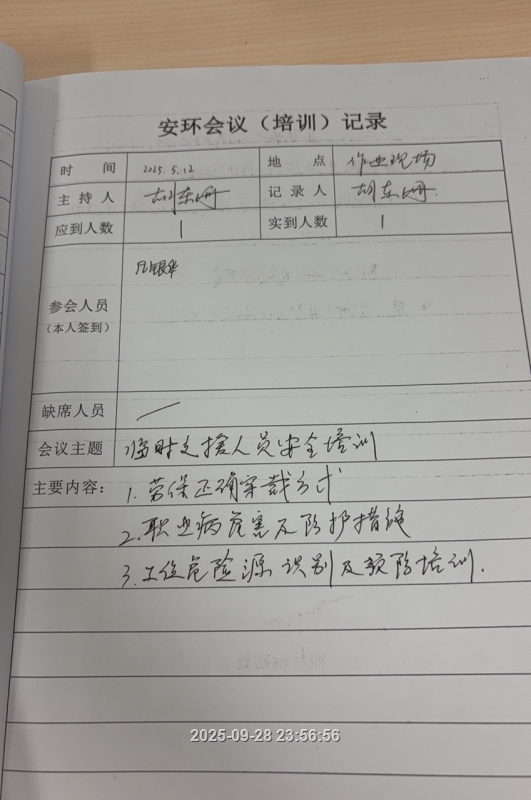 安环会议（培训）记录
时 间 2025.5.12 地 点 作业现场
主 持 人 胡东 记 录 人 胡东
应到人数 1 实到人数 1
参会人员 银华
（本人签到）
缺席人员
会议主题 临时支援人员安全培训
主要内容： 1. 劳保正确穿戴方式
2. 职业病危害及防护措施
3. 工位危险源识别及预防培训.
2025-09-28 23:56:56